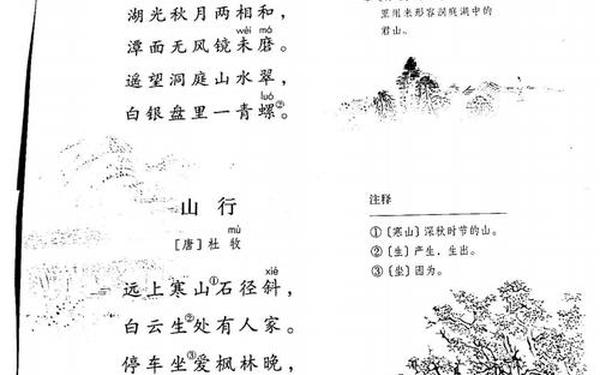 湖光秋月两相和，
wèi mó
潭面无风镜未磨。
遥望洞庭山水翠，
luó
白银盘里一青螺②。
里用来形容洞庭湖中的
君山。
山行
mù
［唐］杜牧
xié
远上寒山①石径斜，
白云生②处有人家。
停车坐③爱枫林晚，
注释
①〔寒山〕深秋时节的山。
②〔生〕产生，生出。
③〔坐〕因为。